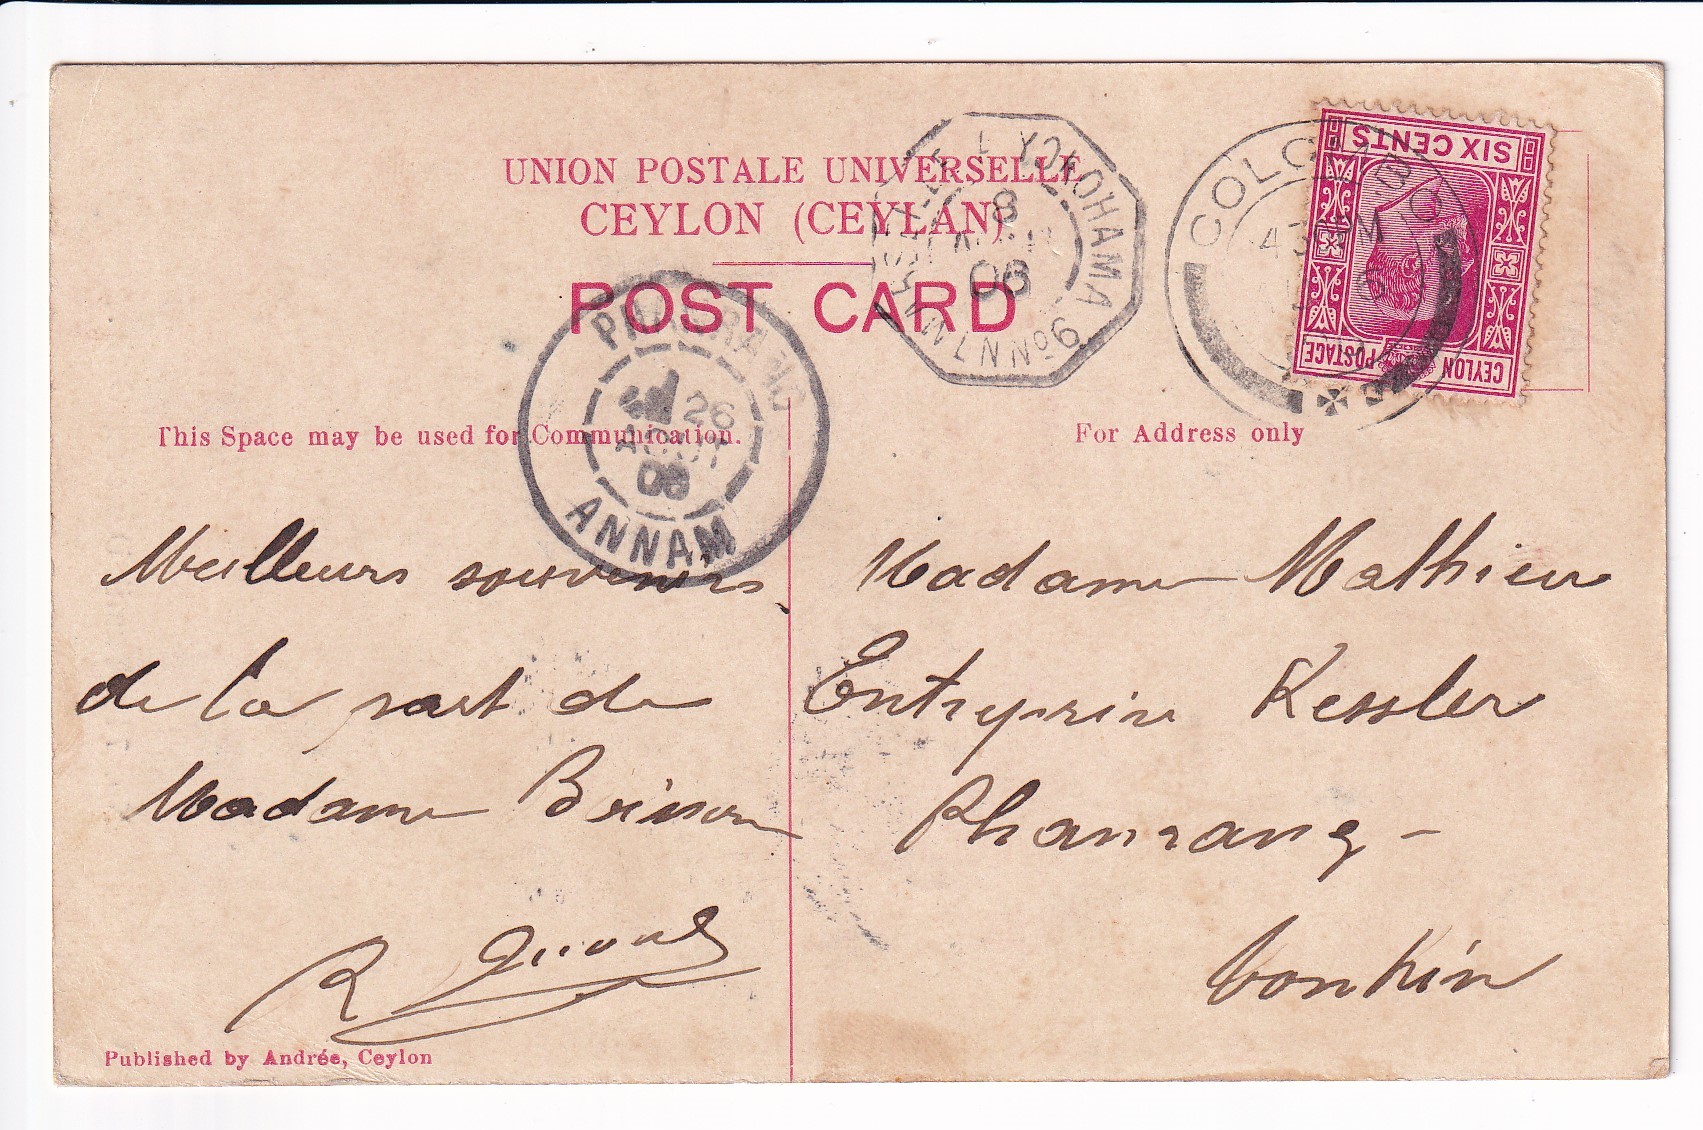 UNION POSTALE UNIVERSELLE
CEYLON (CEYLAN)
POST CARD
SIX CENTS
CEYLON POSTAGE
COLOMBO
YOKOHAMA
8
06
PHANRANG
26
AOUT
06
ANNAM
This Space may be used for Communication.
For Address only
Meilleurs souvenirs
de la part de
Madame Brisson
R
Madame Mathieu
Entreprise Kessler
Phanrang -
Tonkin
Published by Andrée, Ceylon